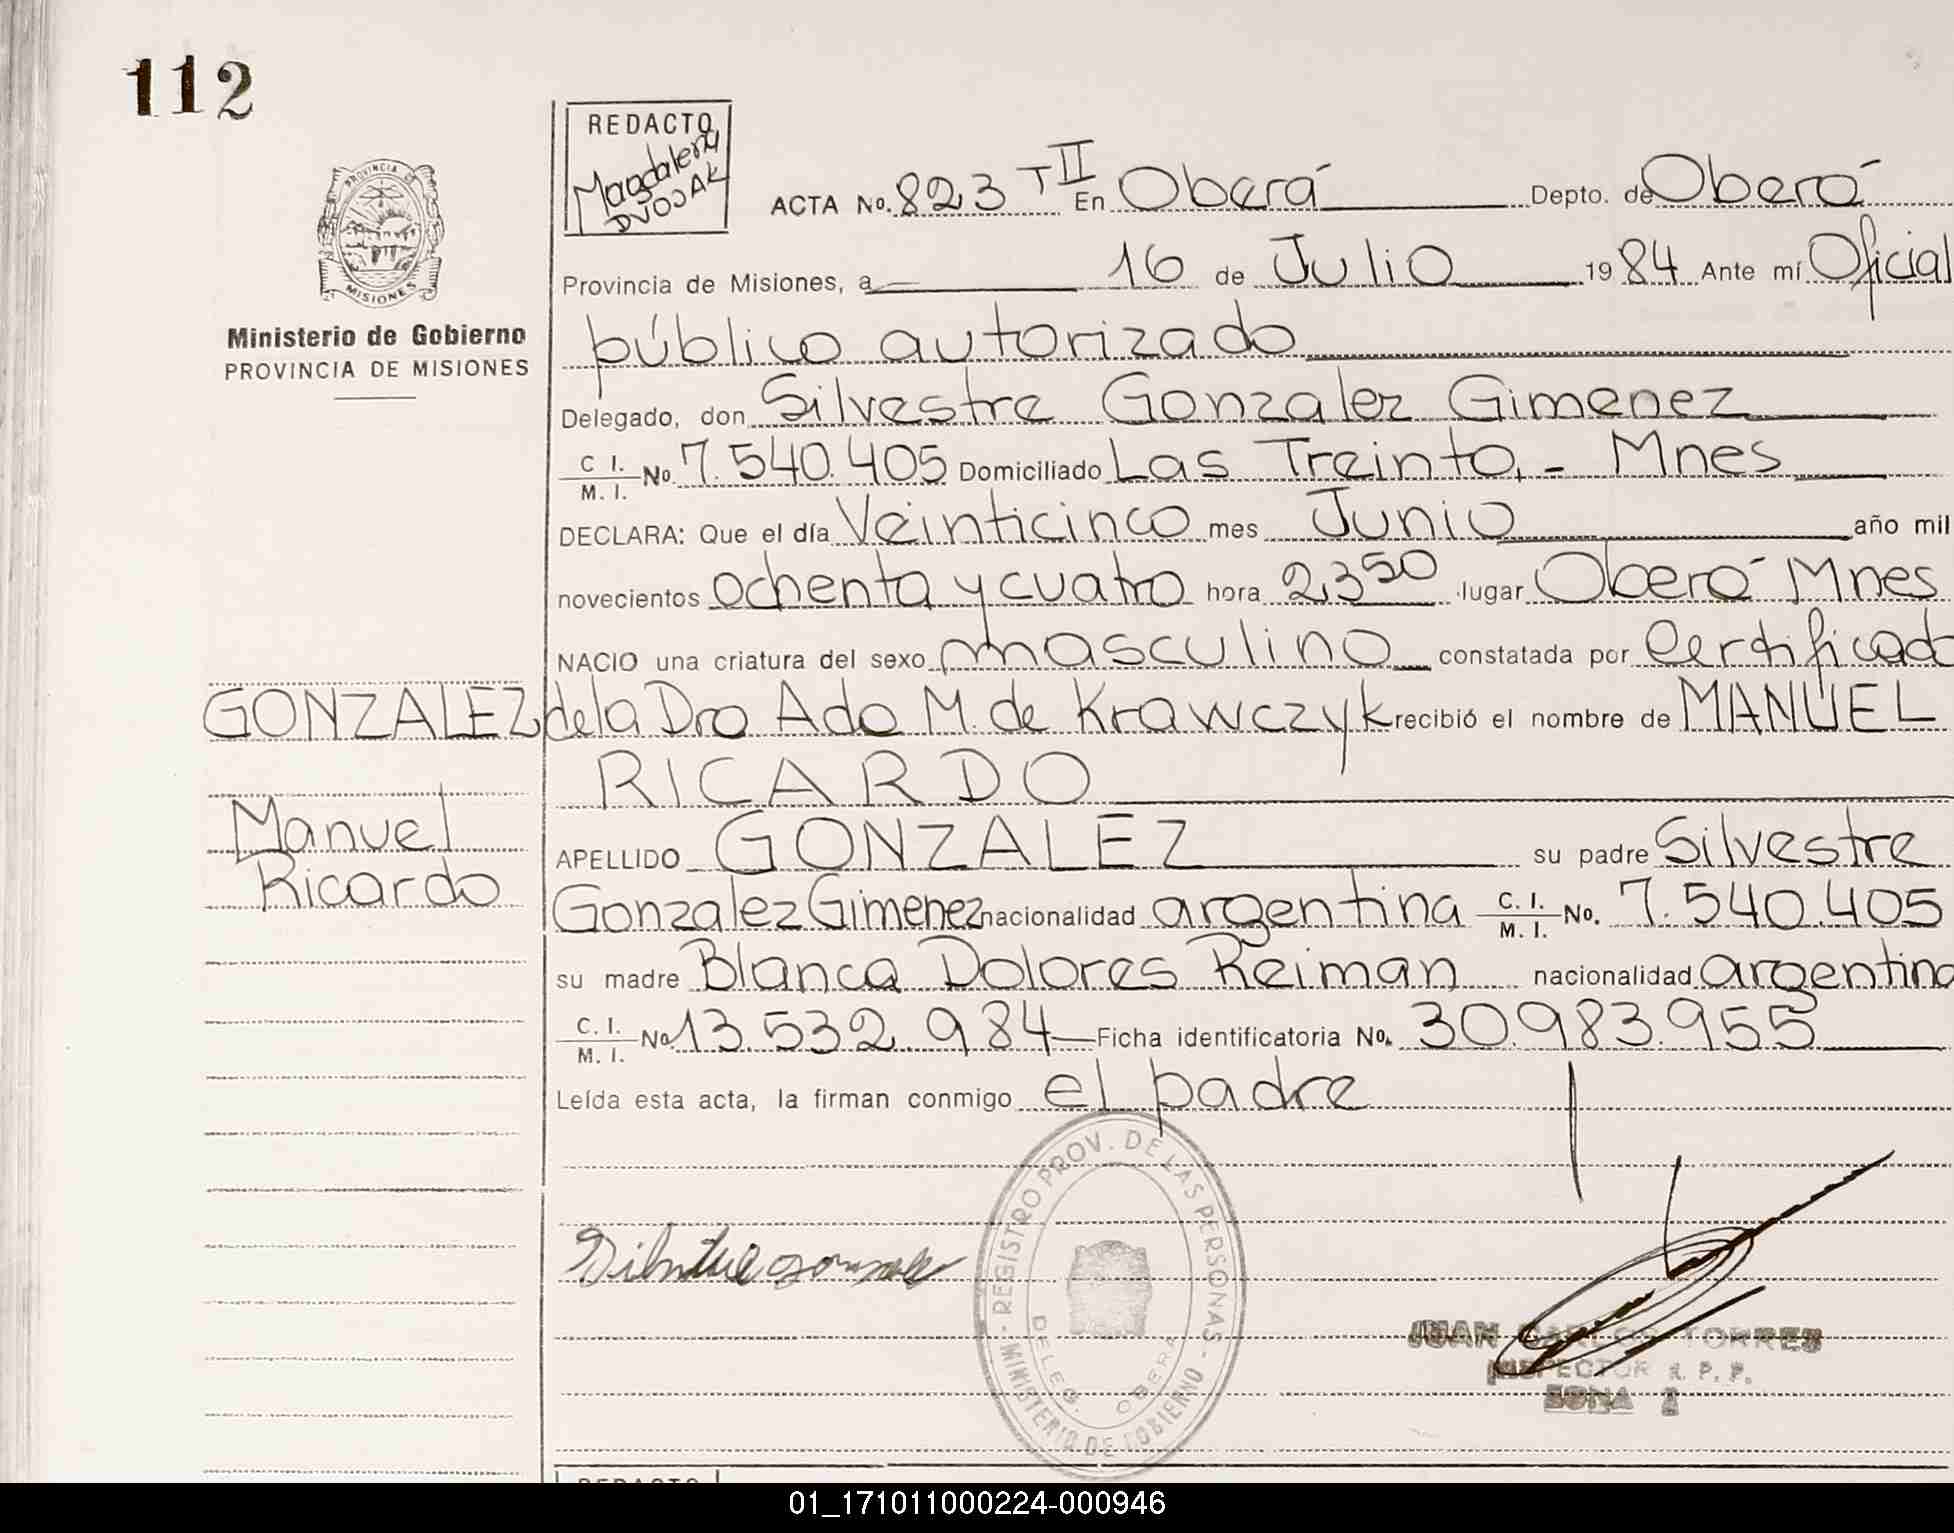 112
REDACTO
Magdalena
DVOJAK
PROVINCIA DE
MISIONES
Ministerio de Gobierno
PROVINCIA DE MISIONES
ACTA No. 823 T II En Oberá Depto. de Oberá
Provincia de Misiones, a 16 de Julio 1984 Ante mí Oficial
público autorizado
Delegado, don Silvestre Gonzalez Gimenez
C I. / M. I. No. 7.540.405 Domiciliado Las Treinta, - Mnes
DECLARA: Que el día Veinticinco mes Junio año mil
novecientos ochenta y cuatro hora 2,350 lugar Oberá Mnes
NACIO una criatura del sexo masculino constatada por Certificado
de la Dra Ada M. de Krawczyk recibió el nombre de MANUEL
RICARDO
APELLIDO GONZALEZ su padre Silvestre
Gonzalez Gimenez nacionalidad argentina C. I. / M. I. No. 7.540.405
su madre Blanca Dolores Reiman nacionalidad argentina
C. I. / M. I. No. 13.532.984 Ficha identificatoria No. 30.983.955
Leída esta acta, la firman conmigo el padre
GONZALEZ
Manuel
Ricardo
REGISTRO PROV. DE LAS PERSONAS - MINISTERIO DE GOBIERNO -
DELEG. OBERA
JUAN CARLOS TORRES
INSPECTOR R. P. P.
ZONA 2
REDACTO
01_171011000224-000946